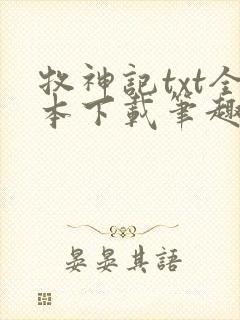 牧神記txt全
本下載筆趣
晏晏其語